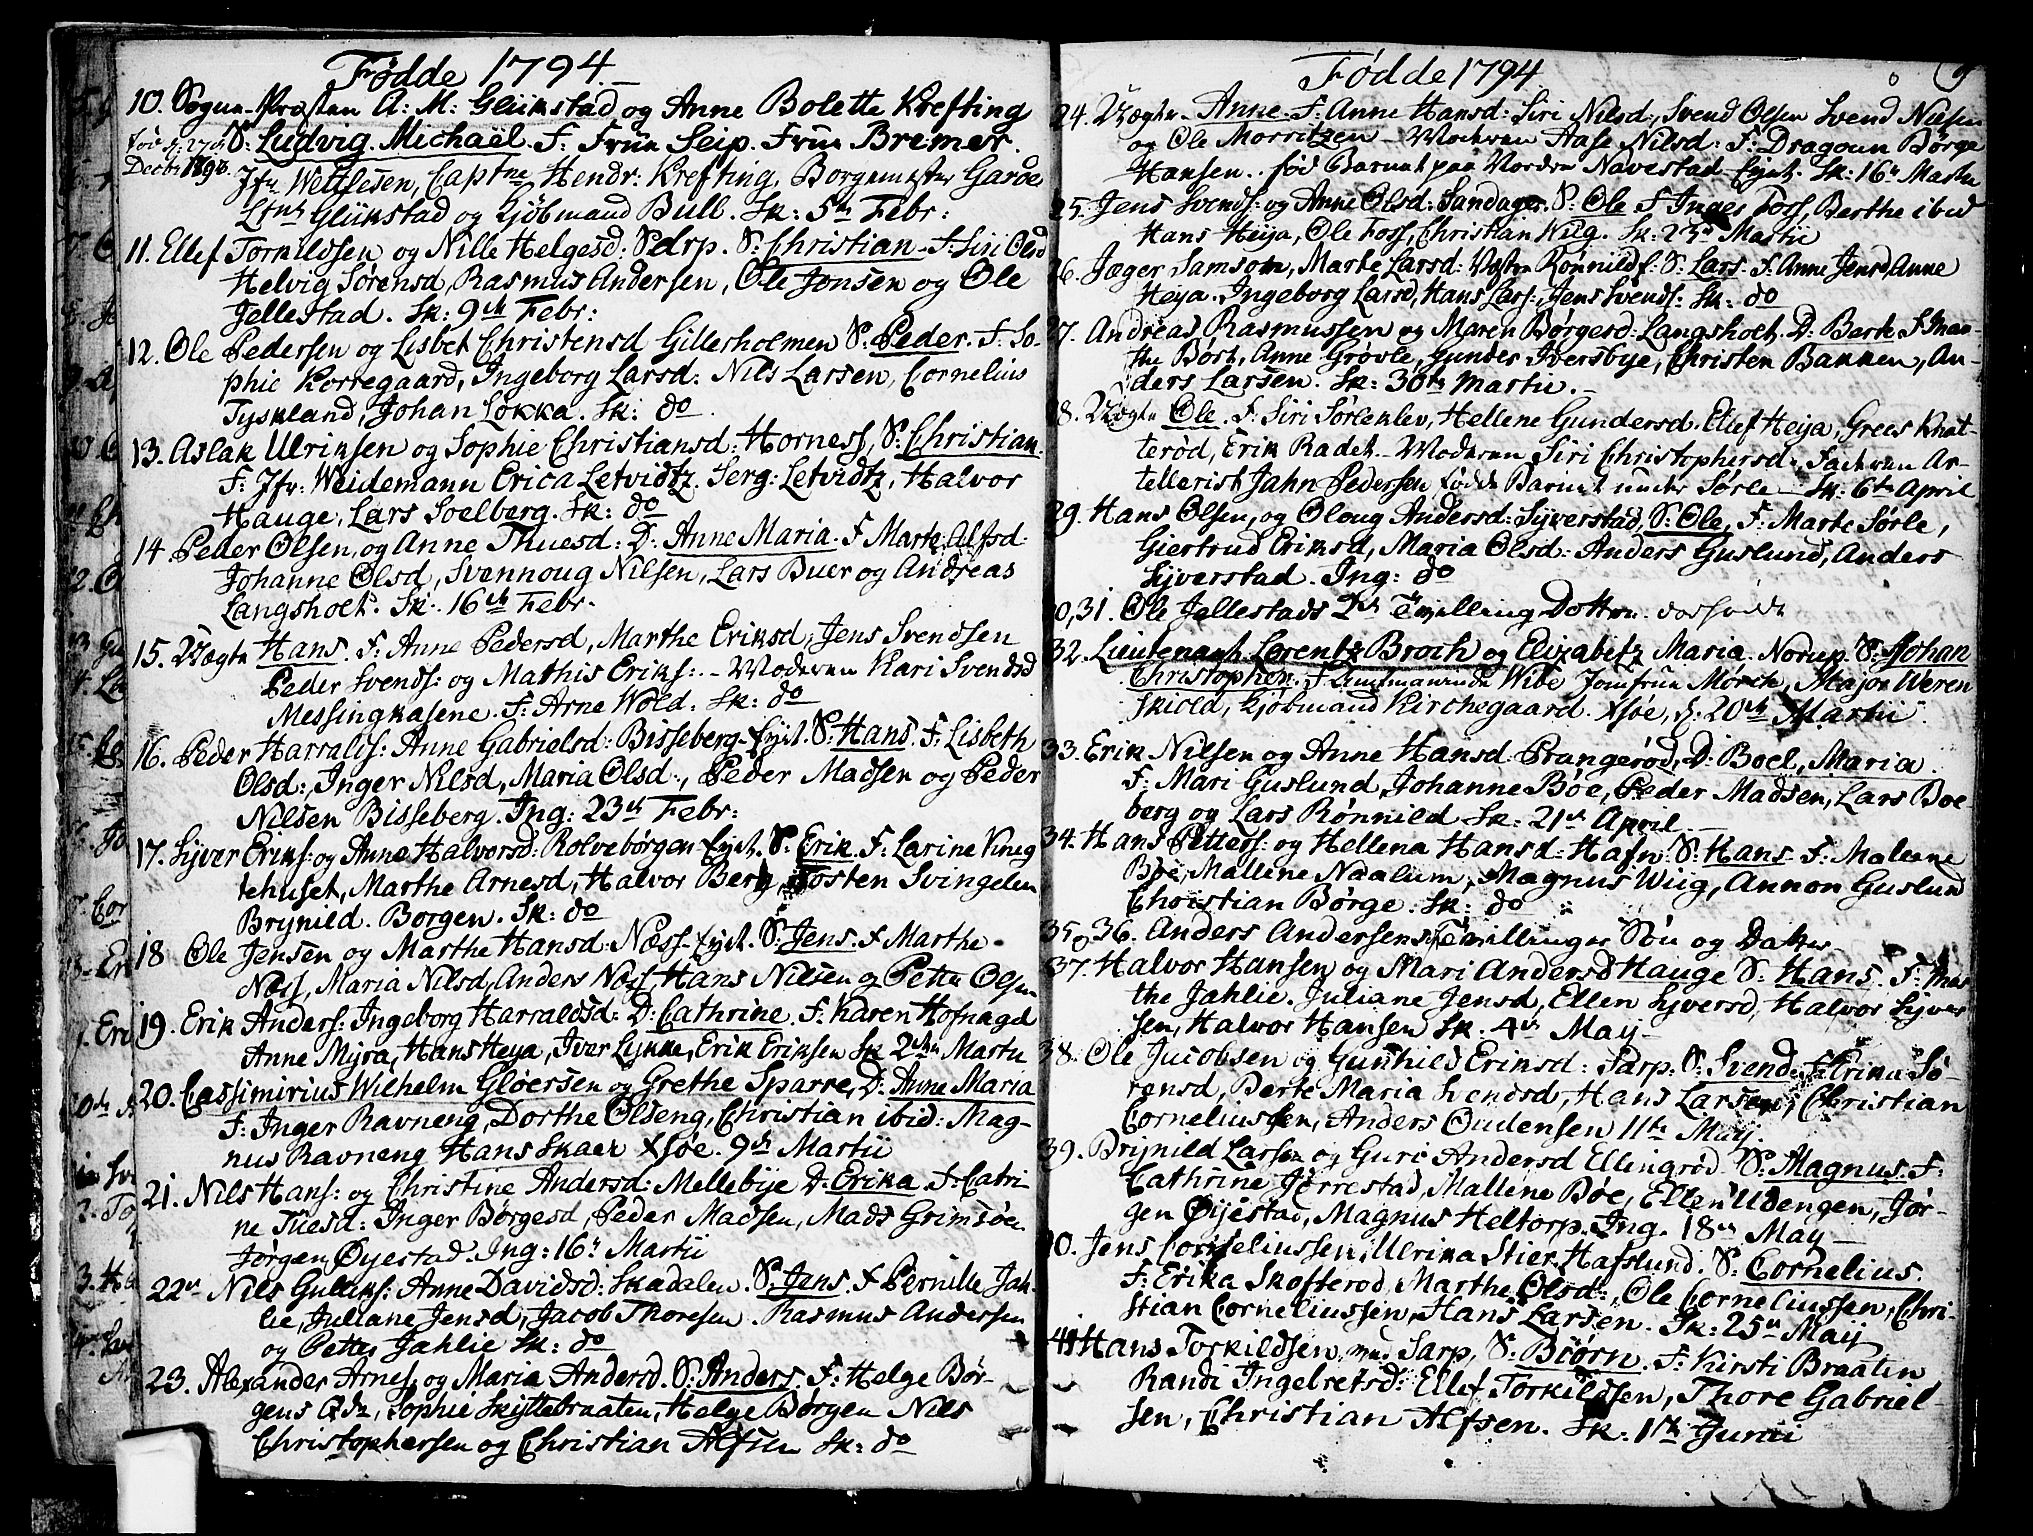 Fødde 1794
10. Sogne-Præsten A: M: Glükstad og Anne Bolette Krefting
S: Ludvig Michaël. F: Frue Seip. Frue Bremer.
Decbr 1793.
Jfr Wettlesen, Captne Hendr: Krefting, Borgemester Garde
Ltnt Glükstad og Kjöbmand Bull. Sk: 5te Febr:
11. Ellef Torkildsen og Nille Helgesd: Sarp. S: Christian. F: Siri Olsd
Helvig Sørensd, Rasmus Andersen, Ole Jonsen og Ole
Jellestad. Sk: 9de Febr:
12. Ole Pedersen og Lisbet Christensd Gillerholmen S: Peder. F. So-
phie Korregaard, Ingeborg Larsd: Nils Larsen, Cornelius
Tyskland, Johan Løkka. Sk: do
13. Aslak Ulriksen og Sophie Christiansd: Horness, S: Christian.
F: Jfr: Weidemann Erica Letvidtz. Serg: Letvidtz, Halvor
Hauge, Lars Soelberg. Sk: do
14 Peder Olsen, og Anne Thuesd: D: Anne Maria. F Marte Alfsd:
Johanne Olsd, Svennoug Nilsen, Lars Buer og Andreas
Langsholt. Sk. 16de Febr.
15. Uægte Hans. F: Anne Pedersd, Marthe Eriksd, Jens Svendsen
Peder Svends: og Mathis Eriks: - Moderen Kari Svendsd
Messingkasene. F: Arne Wold. Sk: do
16. Peder Harralds: Anne Gabrielsd: Bisseberg-Eyet. S: Hans. F: Lisbeth
Olsd:, Inger Nilsd, Maria Olsd:, Peder Madsen og Peder
Nilsen Bisseberg. Ing: 23de Febr:
17. Syver Eriks: og Anne Halvorsd: Rolvsbørgen-Eyet. S: Erik. F: Larine Kneg
tehuset, Marthe Arnesd, Halvor Berg, Tosten Svingelen
Brynild. Borgen. Sk: do
18 Ole Jensen og Marthe Hansd: Næss-Eyet. S: Jens. F Marthe
Næss, Maria Nilsd, Anders Næss, Hans Nilsen og Petter Olsen
19. Erik Anders: Ingeborg Harraldsd: D: Cathrine. F: Karen Hofnagel
Anne Myra, Hans Heya, Iver Lykke, Erik Eriksen Sk 2den Martii
20. Cassimirius Wilhelm Gløersen og Grethe Sparre, D: Anne Maria
F: Inger Ravneng, Dorthe Olseng, Christian ibid: Mag-
nus Ravneng Hans Skaer Xsøe. 9de Martii
21. Nils Hans: og Christine Andersd: Mellebye D: Erika. F: Catri-
ne Tuesd: Inger Børgesd, Peder Madsen, Mads Grimsøen
Jørgen Øyestad. Ing: 16de Martii
22. Nils Gulliks: Anne Davidsd: Skadalen. S: Jens. F Pernille Jah-
lie, Juliane Jensd, Jacob Thoresen. Rasmus Andersen
og Petter Jahlie Sk: do
23. Alexander Arnes: og Maria Andersd. S: Anders. F: Helge Bør-
gens Qde, Sophie Skyttebraaten, Helge Børgen Nils
Christophersen og Christian Alfsen Sk: do
Fødde 1794
24. Uægte. Anne. F. Anne Hansd: Siri Nilsd:, Svend Olsen Svend Nilsen
og Ole Morritzen - Moderen Aase Nilsd: F: Dragoun Børge
Hansen. fød Barnet paa Nordre Navestad-Eyet. Sk: 16de Martii
25. Jens Svends: og Anne Olsd: Sandager. S: Ole F Inger Foss, Berthe ibid
Hans Heija, Ole Foss, Christian Wilg. Sk: 23de Martii
26. Jæger Samson, Marte Larsd: Vestre Rønnild. S: Lars. F: Anne Jensd, Anne
Heya. Ingeborg Larsd, Hans Lars:, Jens Svends: Sk: do
27. Andreas Rasmussen og Maren Børgesd: Langsholt D: Berte. F Mar-
the Børt, Anne Grøvle, Gunder Iversbye, Christen Bakken, An-
ders Larsen. Sk: 30te Martii.
28. Uægte Ole. F. Siri Sørlekley, Hellene Gundersd. Ellef Heija, Grees Knat-
terød, Erik Radet - Moderen Siri Christophersd: Faderen Ar-
tellerist Jahn Pedersen fødde Barnet under Sørle - Sk: 6te April
29. Hans Olsen, og Oloug Andersd: Syverstad, S: Ole. F: Marte Sørle,
Giertrud Eriksd, Maria Olsd: Anders Guslund, Anders
Syverstad. Ing: do
30, 31. Ole Jellestads 2de Tvilling Døttre
32. Lieutenant Lorentz Broch og Elizabetz Maria Norup S: Johan
Christopher. F Wibe Jomfrue Morck, Major Weren
skiold, Kjøbmand Kirchegaard. Xsøe, d. 20de Martii.
33. Erik Nilsen og Anne Hansd Prangerød, D: Boel Maria.
F: Mari Guslund, Johanne Bøe, Peder Madsen, Lars Boe
berg og Lars Rønnild Sk: 21de April
34. Hans Petters: og Hellena Hansd: Hafn. S: Hans. F: Malene
Bøe, Mallene Naalum, Magnus Wiig, Annon Guslund
Christian Børge. Sk: do
35 og 36. Anders Andersens Tvillinger Søn og Datter
37. Halvor Hansen og Mari Andersd Hauge S: Hans. F: Mar
the Jahlie. Juliane Jensd, Ellen Syversd, Halvor Syver
sen, Halvor Hansen Sk. 4de May
38. Ole Jacobsen og Gunhild Eriksd: Sarp: S: Svend. F: Erika Sø-
rensd, Berte Maria Svendsd, Hans Larsen, Christian
Corneliussen, Anders Oudensen 11te Maij.
39. Brijnild Larsen og Guri Andersd Ellingrød S: Magnus. F:
Cathrine Jørrestad, Mallene Bøe, Ellen Udengen, Jør-
gen Øijestad, Magnus Heltorp. Ing. 18de May
40. Jens Corneliussen, Ulrika Stier Hafslund. S: Cornelius.
F: Erika Skofterød, Marthe Olsd:, Ole Corneliussen, Chri-
stian Corneliussen, Hans Larsen. Sk: 25de Maij
41 Hans Torkildsen, Sarp, S: Biørn. F: Kirsti Braaten
Randi Ingelretsd: Ellef Torkildsen, Thore Gabriel-
sen, Christian Alfsen. Sk: 1te Junii